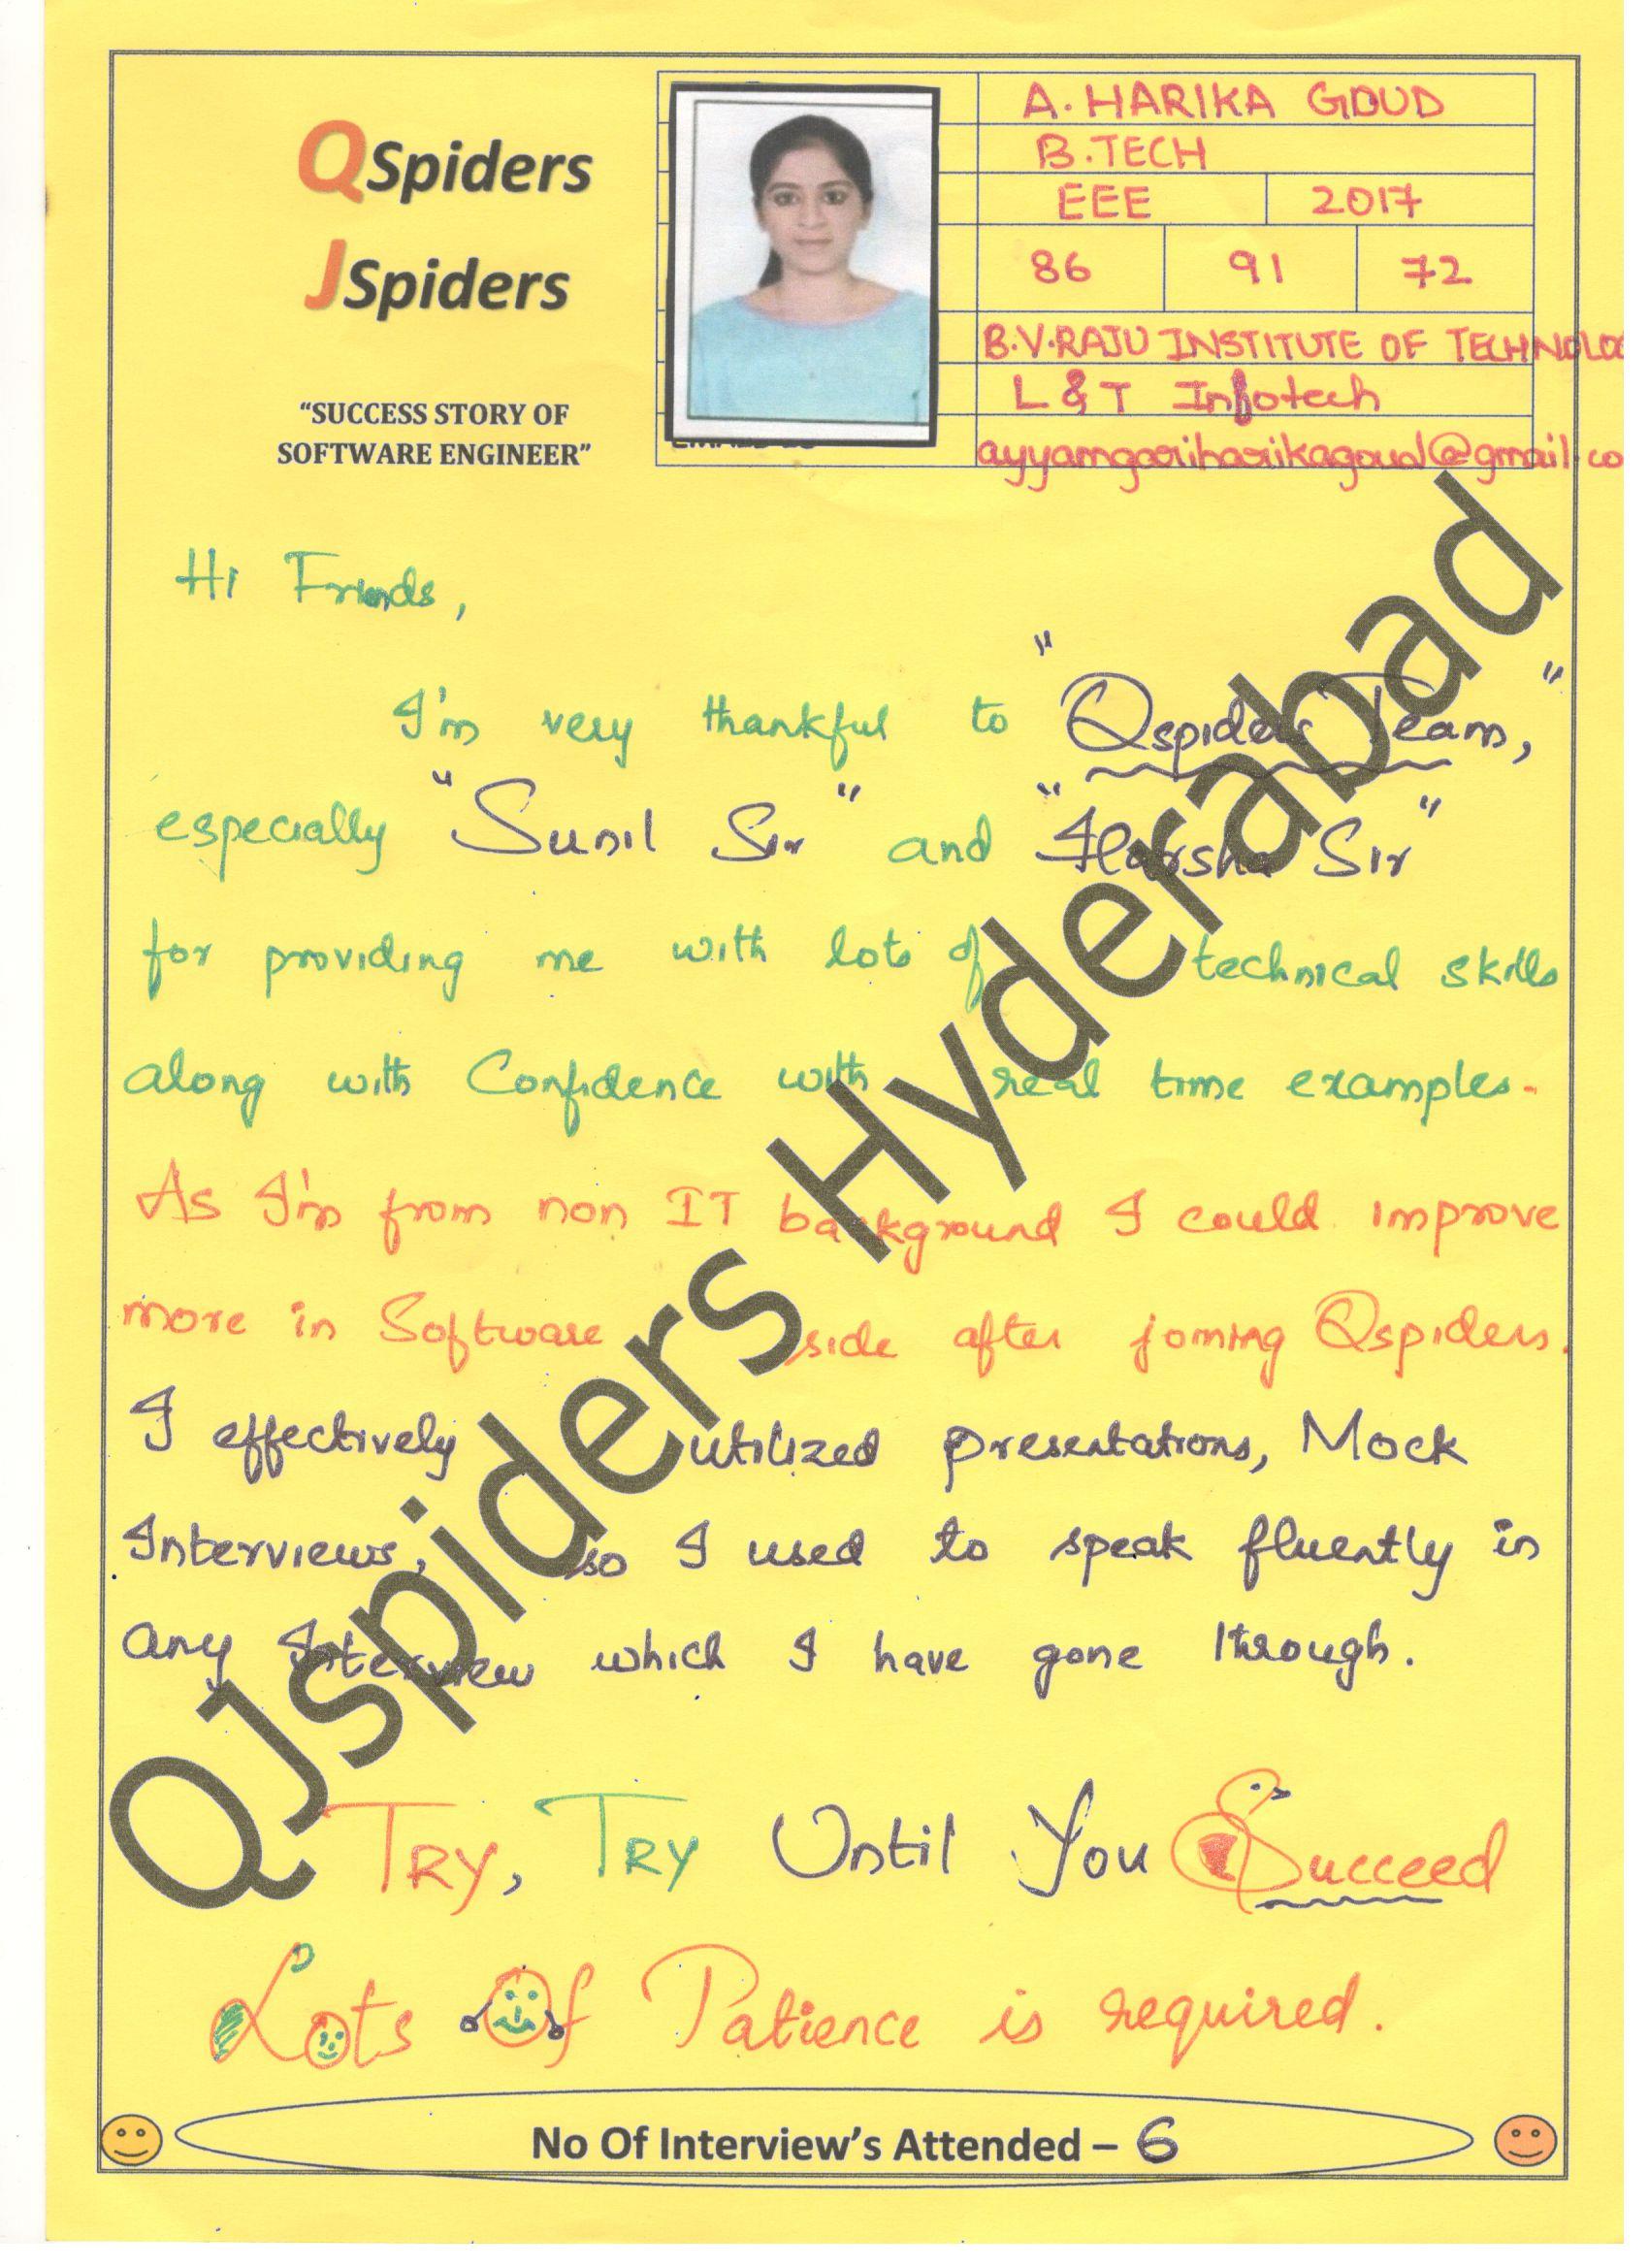 QSpiders
JSpiders
"SUCCESS STORY OF
SOFTWARE ENGINEER"
A. HARIKA GOUD
B.TECH
EEE 2017
86 91 72
B.V.RAJU INSTITUTE OF TECHNOLOG
L & T Infotech
ayyamgariharikagoud@gmail.co
Hi Friends,
I'm very thankful to "Qspiders Team,"
especially "Sunil Sir" and "Harsha Sir"
for providing me with lots of technical skills
along with Confidence with real time examples.
As I'm from non IT background I could improve
more in Software side after joining Qspiders.
I effectively utilized presentations, Mock
Interviews, so I used to speak fluently in
any Interview which I have gone through.
TRY, TRY Until You Succeed
Lots Of Patience is required.
No Of Interview's Attended – 6
QJspiders Hyderabad